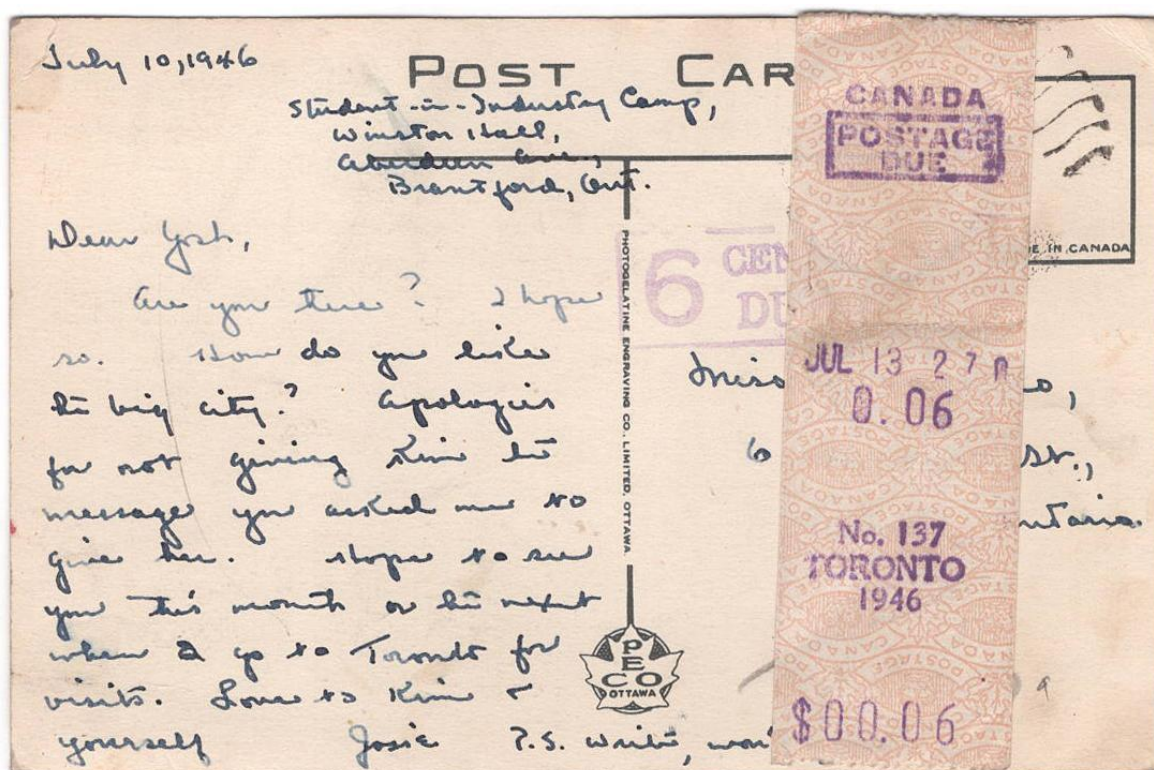 July 10, 1946
POST CAR
Student-in-Industry Camp,
Winston Hall,
Aberdeen Ave.,
Brantford, Ont.
Dear Yosh,
Are you there? I hope
so. How do you like
the big city? Apologies
for not giving Kim the
message you asked me to
give her. Hope to see
you this month or the next
when I go to Toronto for
visits. Love to Kim &
yourself Josie P.S. Write, won'
PHOTOGELATINE ENGRAVING CO., LIMITED, OTTAWA
PECO
OTTAWA
6 CEN
DU
Miss o,
6 St.,
ntario.
E IN CANADA
CANADA
POSTAGE
DUE
JUL 13 27
0.06
No. 137
TORONTO
1946
$00.06